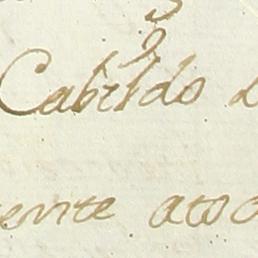 Cabildo
ente atod